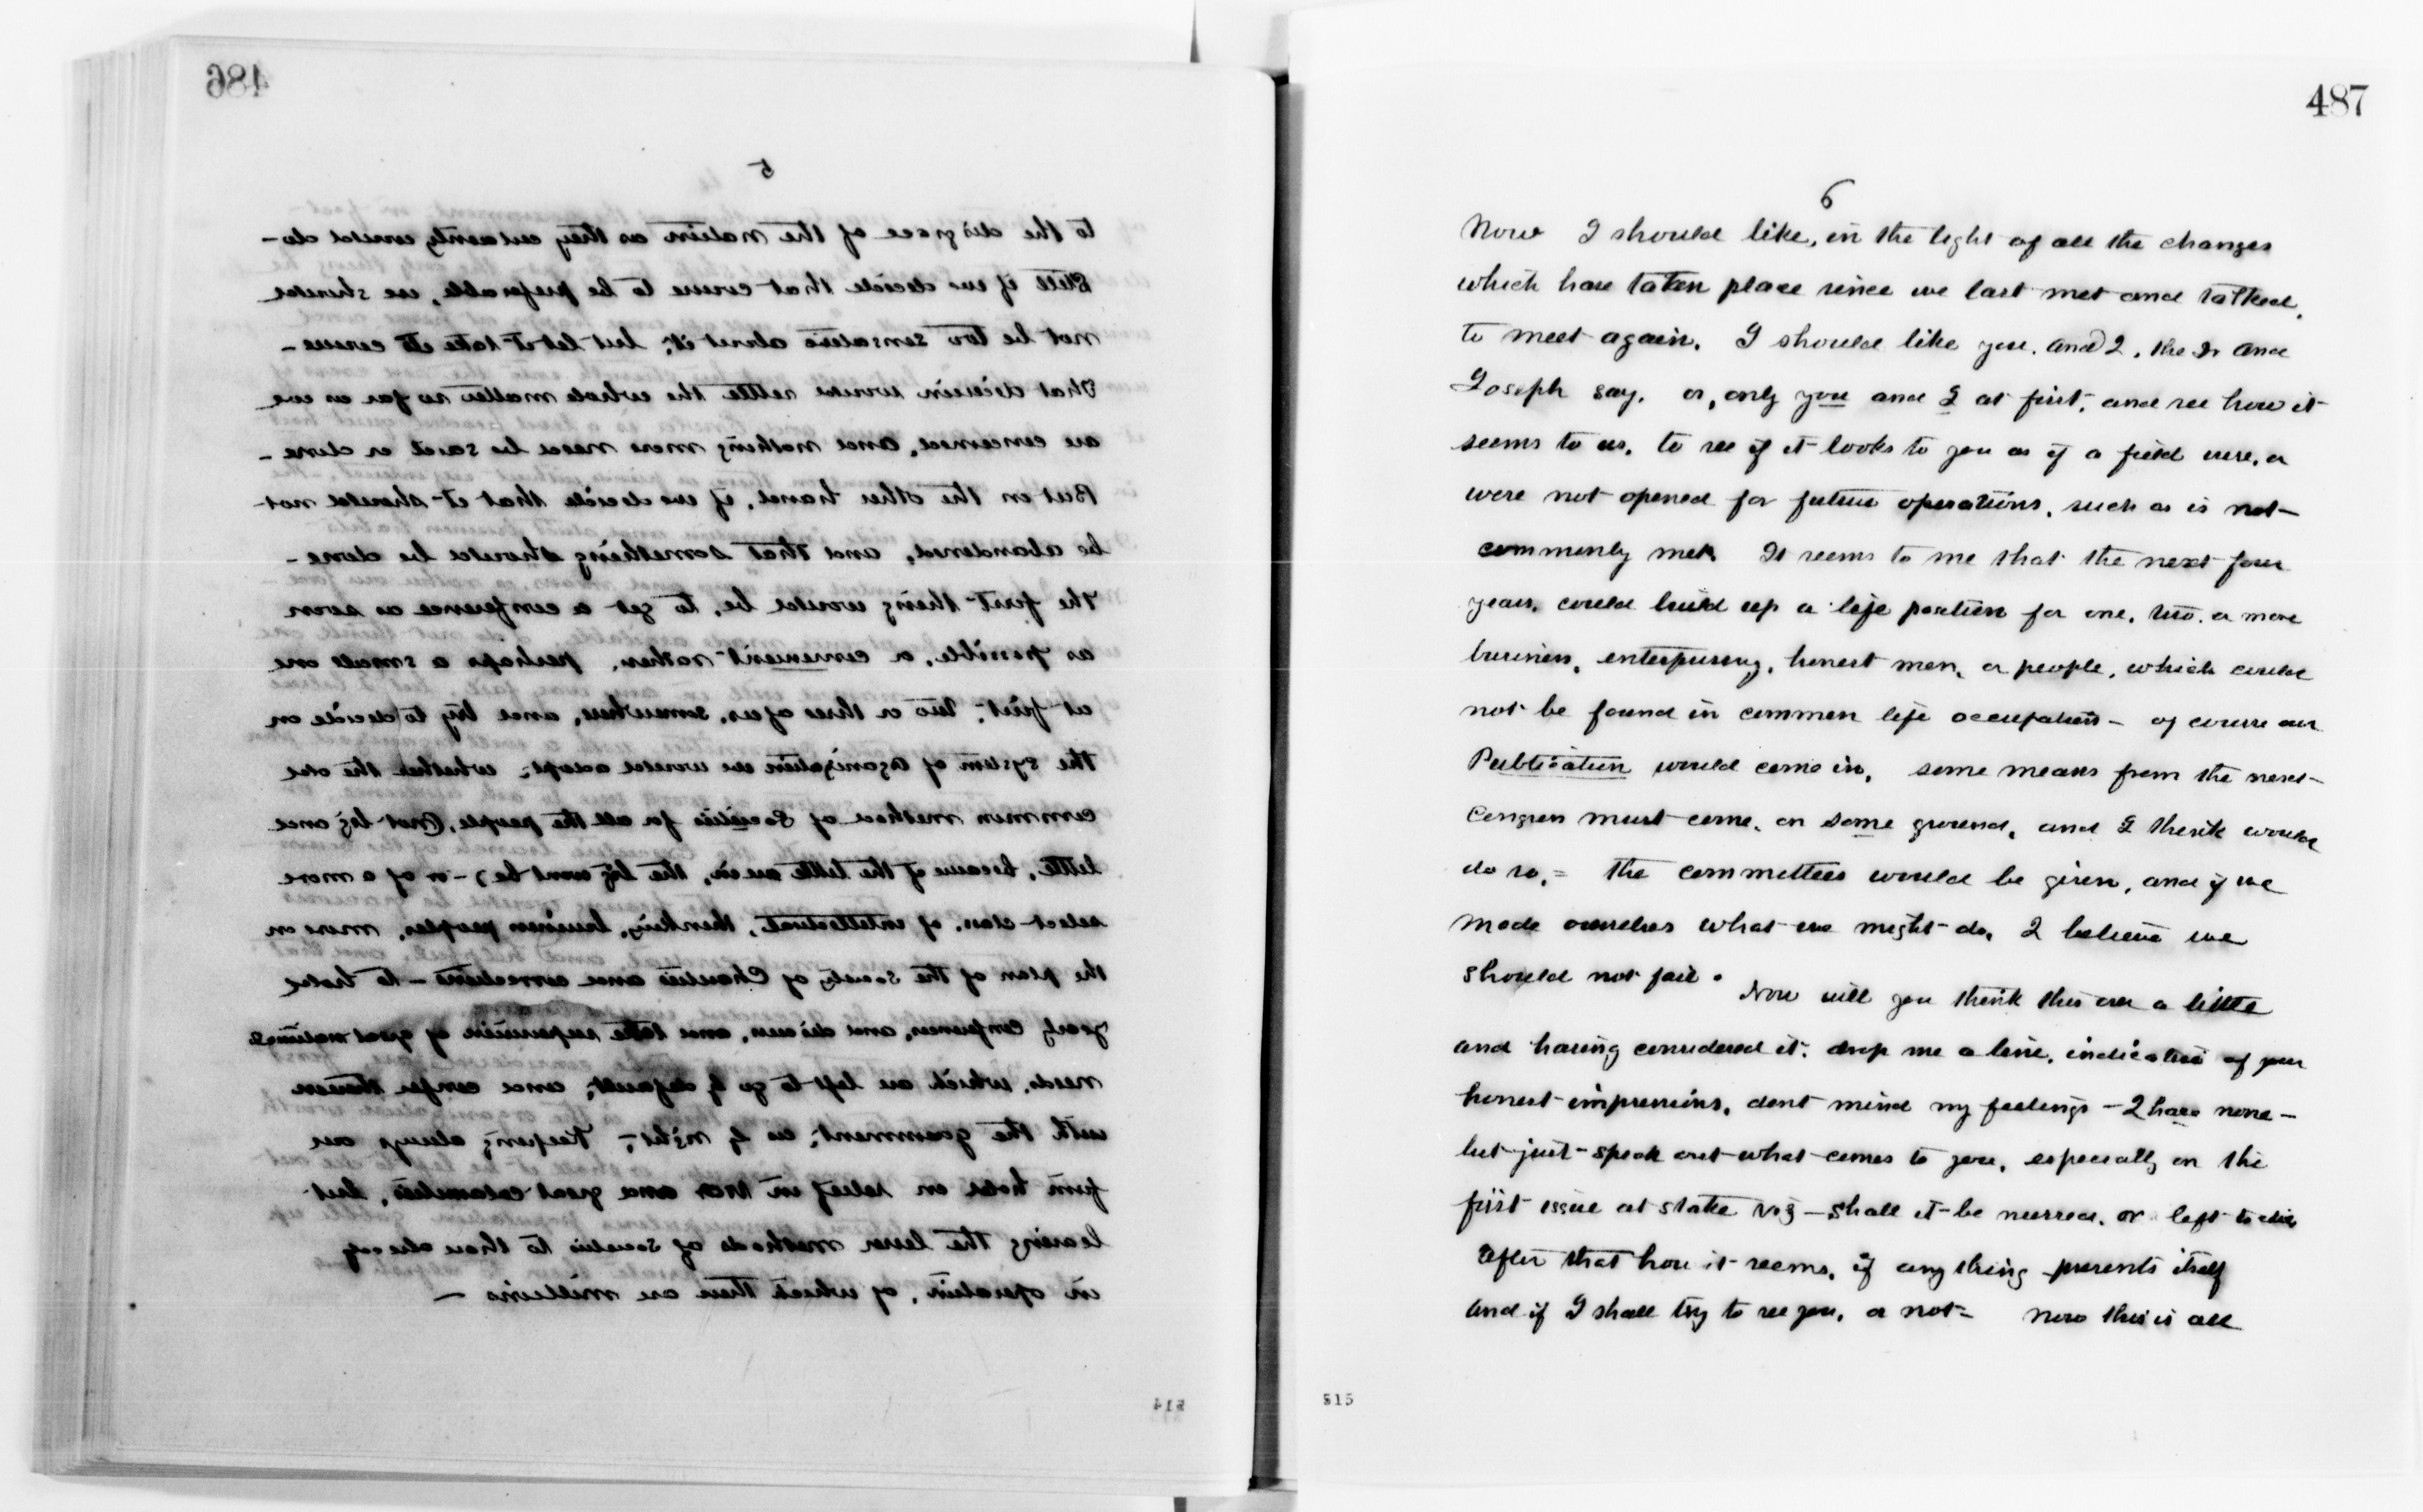 486
5
to the disgrace of the nation as they certainly would do -
Still if we decide that course to be preferable, we should
not be too sensative about it; but let it take its course -
That decision would settle the whole matter so far as we
are concerned, and nothing more need be said or done -
But on the other hand, if we decide that it should not
be abandoned, and that something should be done -
The first thing would be, to get a conference as soon
as possible, or convenient rather, perhaps a small one
at first, two or three of us, somewhere, and try to decide on
the system of organization we would adopt; whether the old
common method of Societies for all the people, (not big and
little, because if the little are in, the big wont be) - or of a more
select class, of intellectual, thinking, business peoples, more on
the plan of the Society of Charities and corrections - to hold
yearly conferences, and discuss, and take supervision of great national
needs, which are left to go by default, and confer
with the government, as by right, - Keeping always our
firm hold on relief in war and great calamities, but
leaving the lesser methods of societies to those already
in operation, of which there are millions -
514
487
6
Now I should like, in the light of all the changes
which have taken place since we last met and talked,
to meet again. I should like you, and I, the Dr and
Joseph say, or, only you and I at first, and see how it
seems to us, to see if it looks to you as if a field were, or
were not opened for future operations, such as is not
commonly met. It seems to me that the next four
years, could build up a life position for one, two, or more
business, enterprising, honest men, or people, which could
not be found in common life occupations - of course our
Publication would come in, some means from the next
Congress must come, on some ground, and I think would
do so, = the committees would be given, and if we
made ourselves what we might do, I believe we
should not fail.
Now will you think this over a little
and having considered it, drop me a line, indicative of your
honest impressions, dont mind my feelings - I have none -
but just speak out what comes to you, especially on the
first issue at stake viz - shall it be nursed, or left to die
after that how it seems, if any thing presents itself
and if I shall try to see you, or not = Now this is all
515